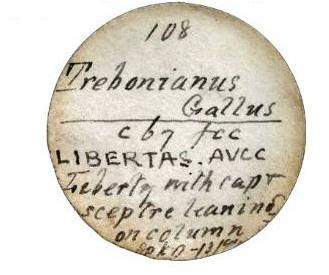 108
Trebonianus
Gallus
c b7 fcc
LIBERTAS. AVCC
Liberty with capt
sceptre leaning
on column